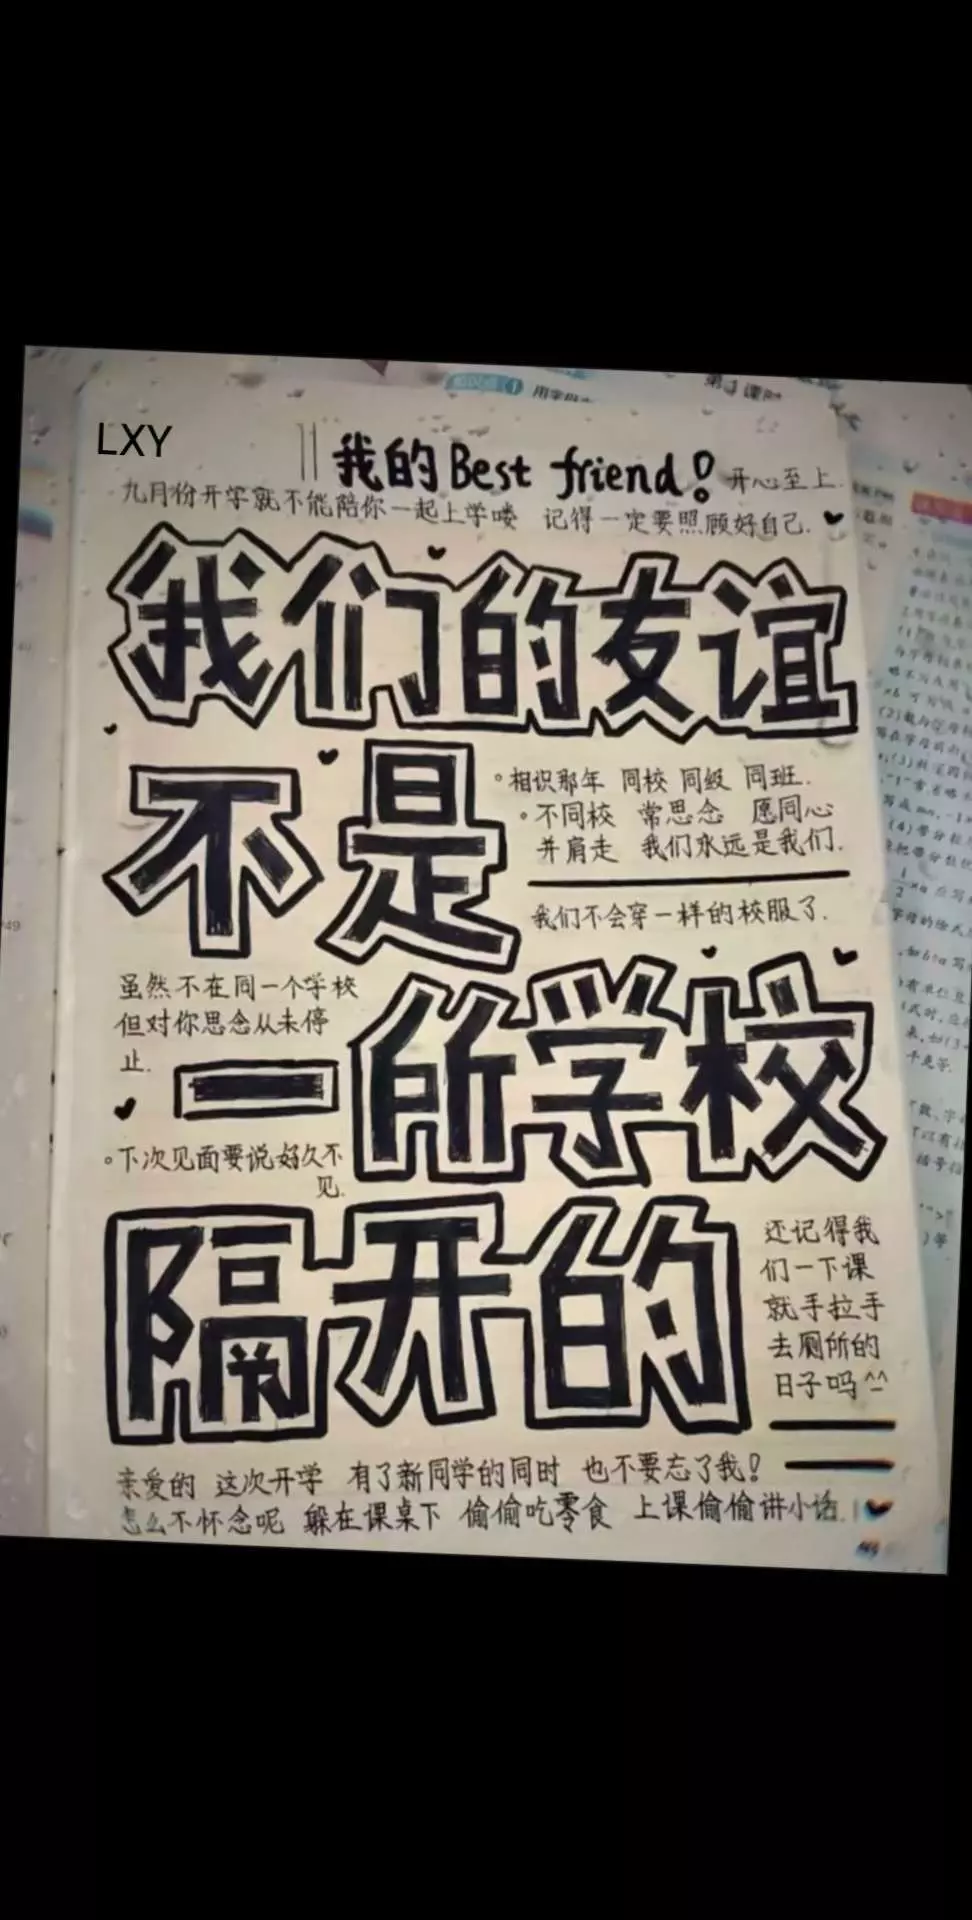 用字母
第1课时
LXY
我的Best friend!
开心至上.
九月份开学就不能陪你一起上学喽 记得一定要照顾好自己.
我们的友谊
不是
相识那年 同校 同级 同班.
不同校 常思念 愿同心
并肩走 我们永远是我们.
我们不会穿一样的校服了.
虽然不在同一个学校
但对你思念从未停
止.
一所学校
下次见面要说好久不
见.
隔开的
还记得我
们一下课
就手拉手
去厕所的
日子吗^-^
亲爱的 这次开学 有了新同学的同时 也不要忘了我!
怎么不怀念呢 躲在课桌下 偷偷吃零食 上课偷偷讲小话.